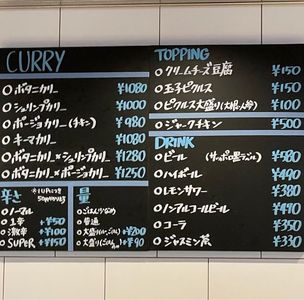 CURRY
○ボタニカリー ¥1080
○シュリンプカリー ¥1000
○ポージョカリー(チキン) ¥980
○キーマカリー ¥1080
○ボタニカリー×シュリンプカリー ¥1280
○ボタニカリー×ポージョカリー ¥1250
辛さ
○ノーマル
○1辛 +¥50
○激辛 +¥100
○SUPER +¥150
量
○ごはん少なめ
○普通
○大盛り +¥200
○大盛り +¥90
TOPPING
○クリームチーズ豆腐 ¥150
○玉子ピクルス ¥150
○ピクルス大盛り ¥100
○ジャークチキン ¥500
DRINK
○ビール (サッポロ黒ラベル) ¥500
○ハイボール ¥490
○レモンサワー ¥380
○ノンアルコールビール ¥470
○コーラ ¥350
○ジャスミン茶 ¥330